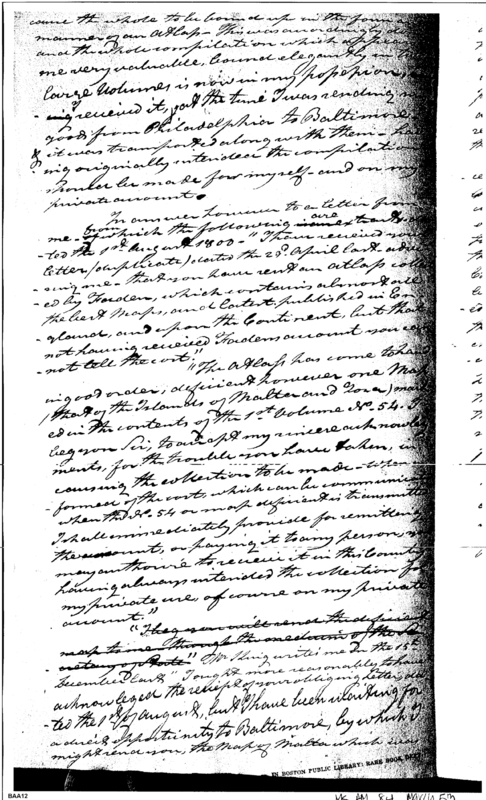 cause the whole to be bound up in the form a
manner of an Atlas - This was accordingly d
and the whole compilation which appears
me very valuable, bound elegantly in
large Volumes is now in my possession,
-ing received it, at the time I was sending m
goods from Philadelphia to Baltimore
& it was transported along with them - hav
ing originally intended the compilation
should be made for myself - and on my
private account.
In answer however to a letter from
me - from which the following are extracts
ted the 1st August 1800 - "I have received your
letter (duplicate) dated the 23d April last advi
-sing me - that you have sent an atlas coll
ed by Faden, which contains almost all
the best Maps, and latest, published in En
-gland, and upon the Continent, but that
not having received Fadens account you can
-not tell the cost."
"The Atlass has come to hand
in good order, deficient however one Map
(that of the Islands of Malta and Goza) mark
ed in the contents of the 1st Volume No. 54. I
beg you Sir, to accept my sincere acknowledg
ments, for the trouble you have taken, in
causing the collection to be made - When in
formed of the cost, which can be communicated
when the No. 54 or map deficient is transmitted
I shall immediately provide for remitting
the amount, or paying it to any person, you
may authorise to receive it in this Country
having always intended the collection for
my private use, of course on my private
account."
"I beg you will send the deficient
map to me through the medium of the Se
cretary of State" Mr King writes me on the 15th
December last "I ought more reasonably to have
acknowledged the receipt of your obliging letter da
-ted the 1st of August, but I have been waiting for
a direct opportunity to Baltimore, by which I
might send you, the Map of Malta which was
IN BOSTON PUBLIC LIBRARY: RARE BOOK DEPT
BAA12